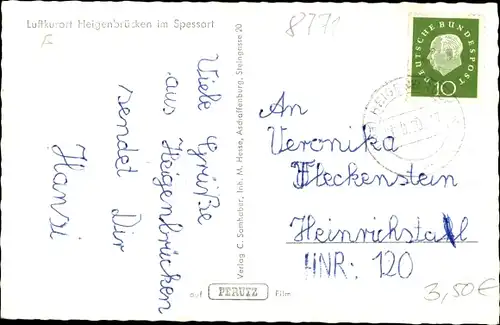 Luftkurort Heigenbrücken im Spessart
8771
DEUTSCHE BUNDESPOST
10
Viele Grüße
aus Heigenbrücken
sendet Dir
Hansi
Verlag C. Samhaber, Inh. M. Hesse, Aschaffenburg, Steingasse 20
An
Veronika
Fleckenstein
Heinrichstal
HNR: 120
auf PERUTZ Film
3,50€